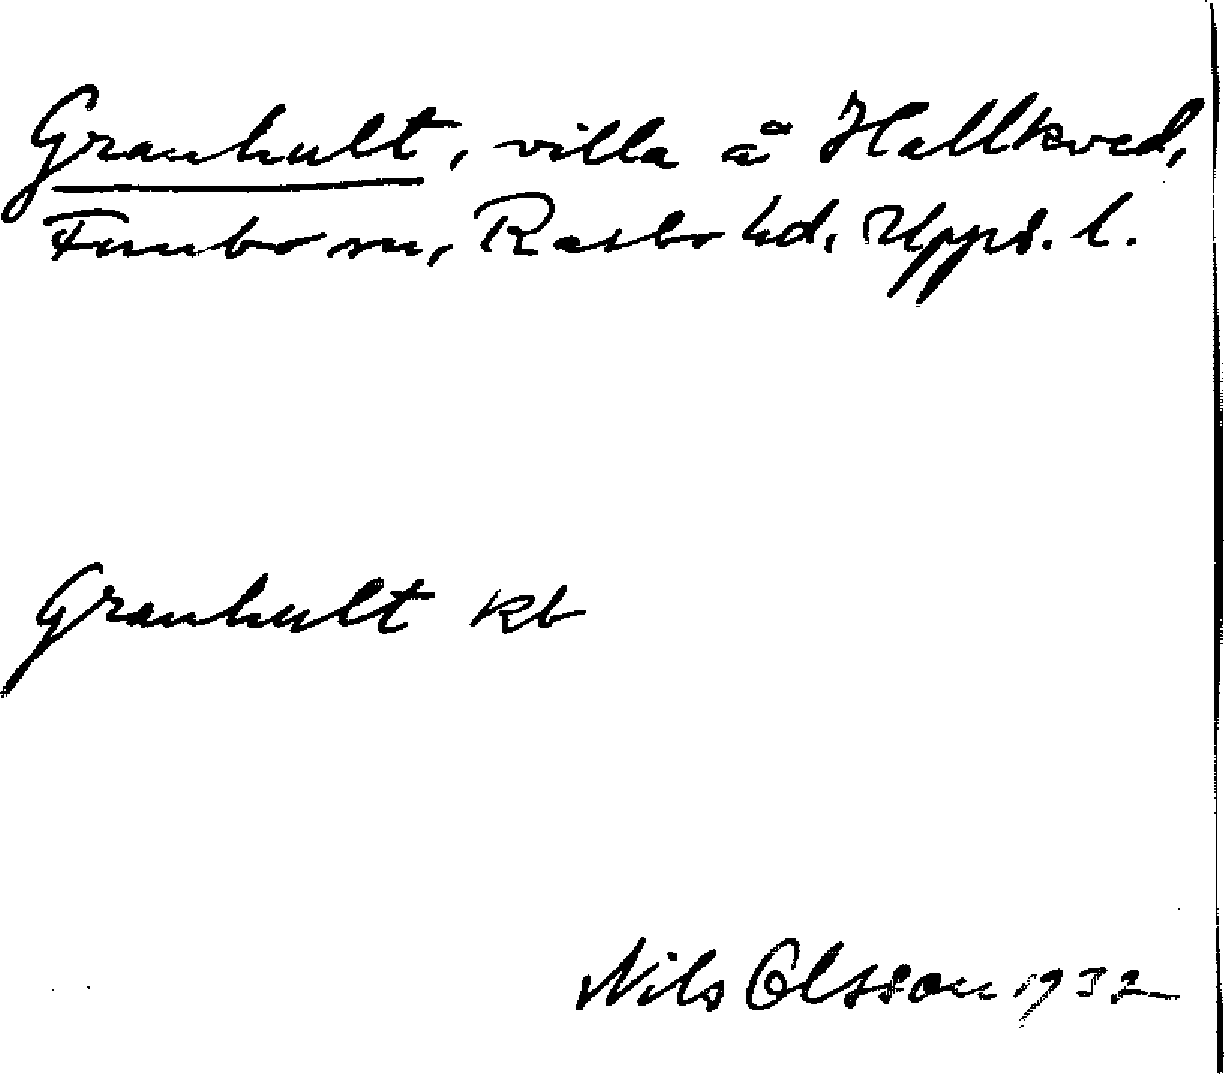 Granhult, villa å Hallkved,
Funbo sn, Rasbo hd, Upps. l.
Granhult kb
Nils Olsson 1932